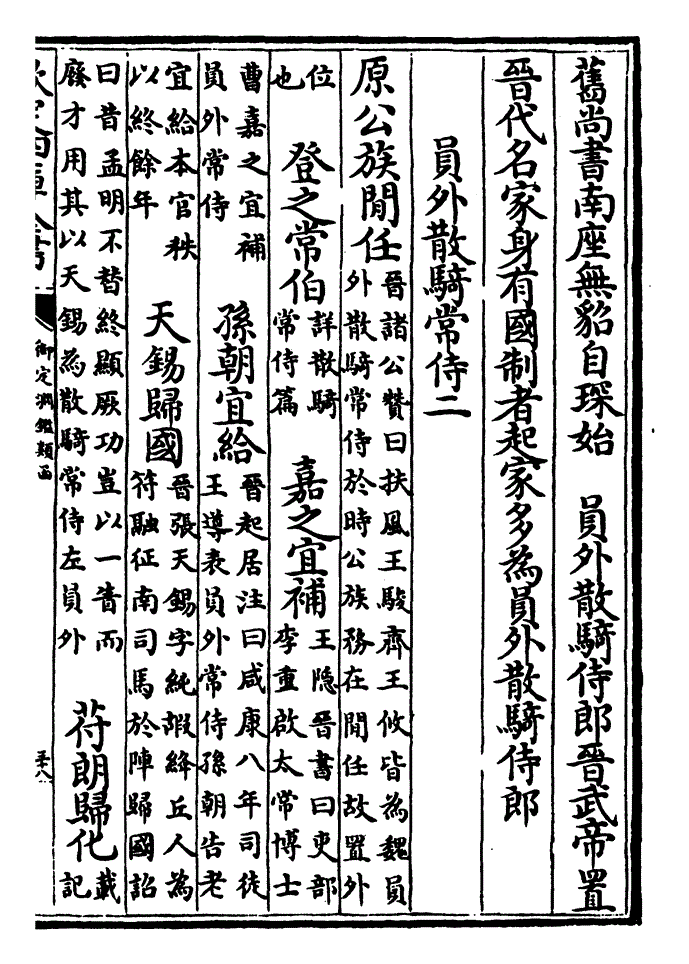 舊尚書南座無貂自琛始　員外散騎侍郎晉武帝置
晉代名家身有國制者起家多為員外散騎侍郎
員外散騎常侍二
原公族閒任
晉諸公贊曰扶風王駿齊王攸皆為魏員
外散騎常侍於時公族務在閒任故置外
位
也
登之常伯
詳散騎
常侍篇
嘉之宜補
王隱晉書曰吏部
李重啟太常博士
曹嘉之宜補
員外常侍
孫朝宜給
晉起居注曰咸康八年司徒
王導表員外常侍孫朝告老
宜給本官秩
以終餘年
天錫歸國
晉張天錫字純嘏絳丘人為
符融征南司馬於陣歸國詔
曰昔孟明不替終顯厥功豈以一眚而
廢才用其以天錫為散騎常侍左員外
苻朗歸化
載
記
御定淵鑑類函